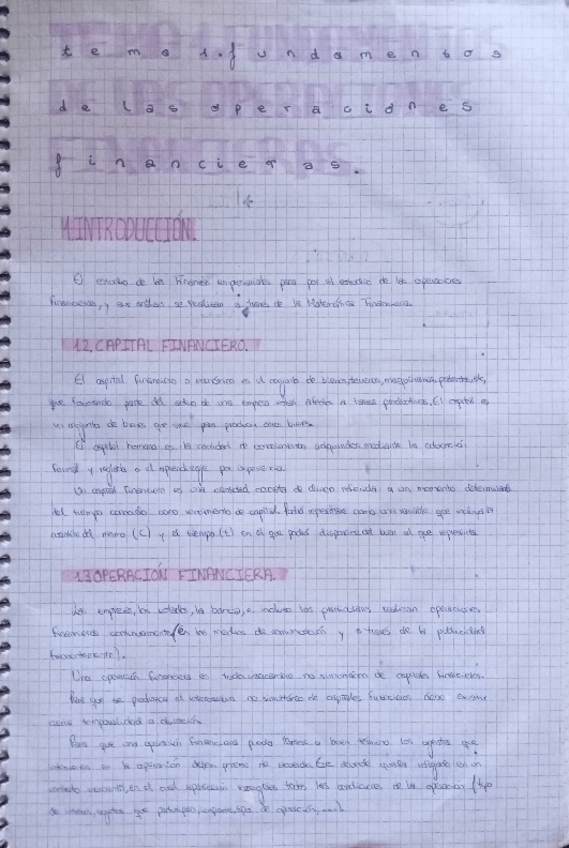 tema 1. fundamentos
de las operaciones
financieras.
1. INTRODUCCIÓN.
El estudio de las finanzas empresariales pasa por el estudio de las operaciones
financieras, y ese análisis se realiza a través de la Matemática Financiera.
1.2. CAPITAL FINANCIERO.
El capital financiero o económico es el conjunto de bienes, terrenos, maquinarias, patentes, etc,
que formando parte del activo de una empresa están afectos a tareas productivas. El capital es
un conjunto de bienes que sirve para producir otros bienes.
El capital humano es la cantidad de conocimientos adquiridos mediante la educación
formal y reglada o el aprendizaje por experiencia.
Un capital financiero es una cantidad concreta de dinero referida a un momento determinado
del tiempo conocido como vencimiento de capital. que incluya la
cuantía del mismo (C) y el tiempo (t) en el que
1.3 OPERACIÓN FINANCIERA.
La empresa, los estados, la banca, e incluso los particulares realizan operaciones
financieras continuamente (en los medios de comunicación y a través de la publicidad
Una operación financiera es todo intercambio no simultáneo de capitales financieros.
Para que se produzca el intercambio no simultáneo de capitales financieros debe existir
cierta temporalidad o duración.
Para que una operación financiera pueda llevarse a buen término los agentes que
intervienen en la operación deben ponerse de acuerdo. Este acuerdo queda reflejado en un
contrato en el cual aparecerán recogidas todas las condiciones de la operación (tipo
de interés, agentes que participan, importe, tipo de operación, ...).